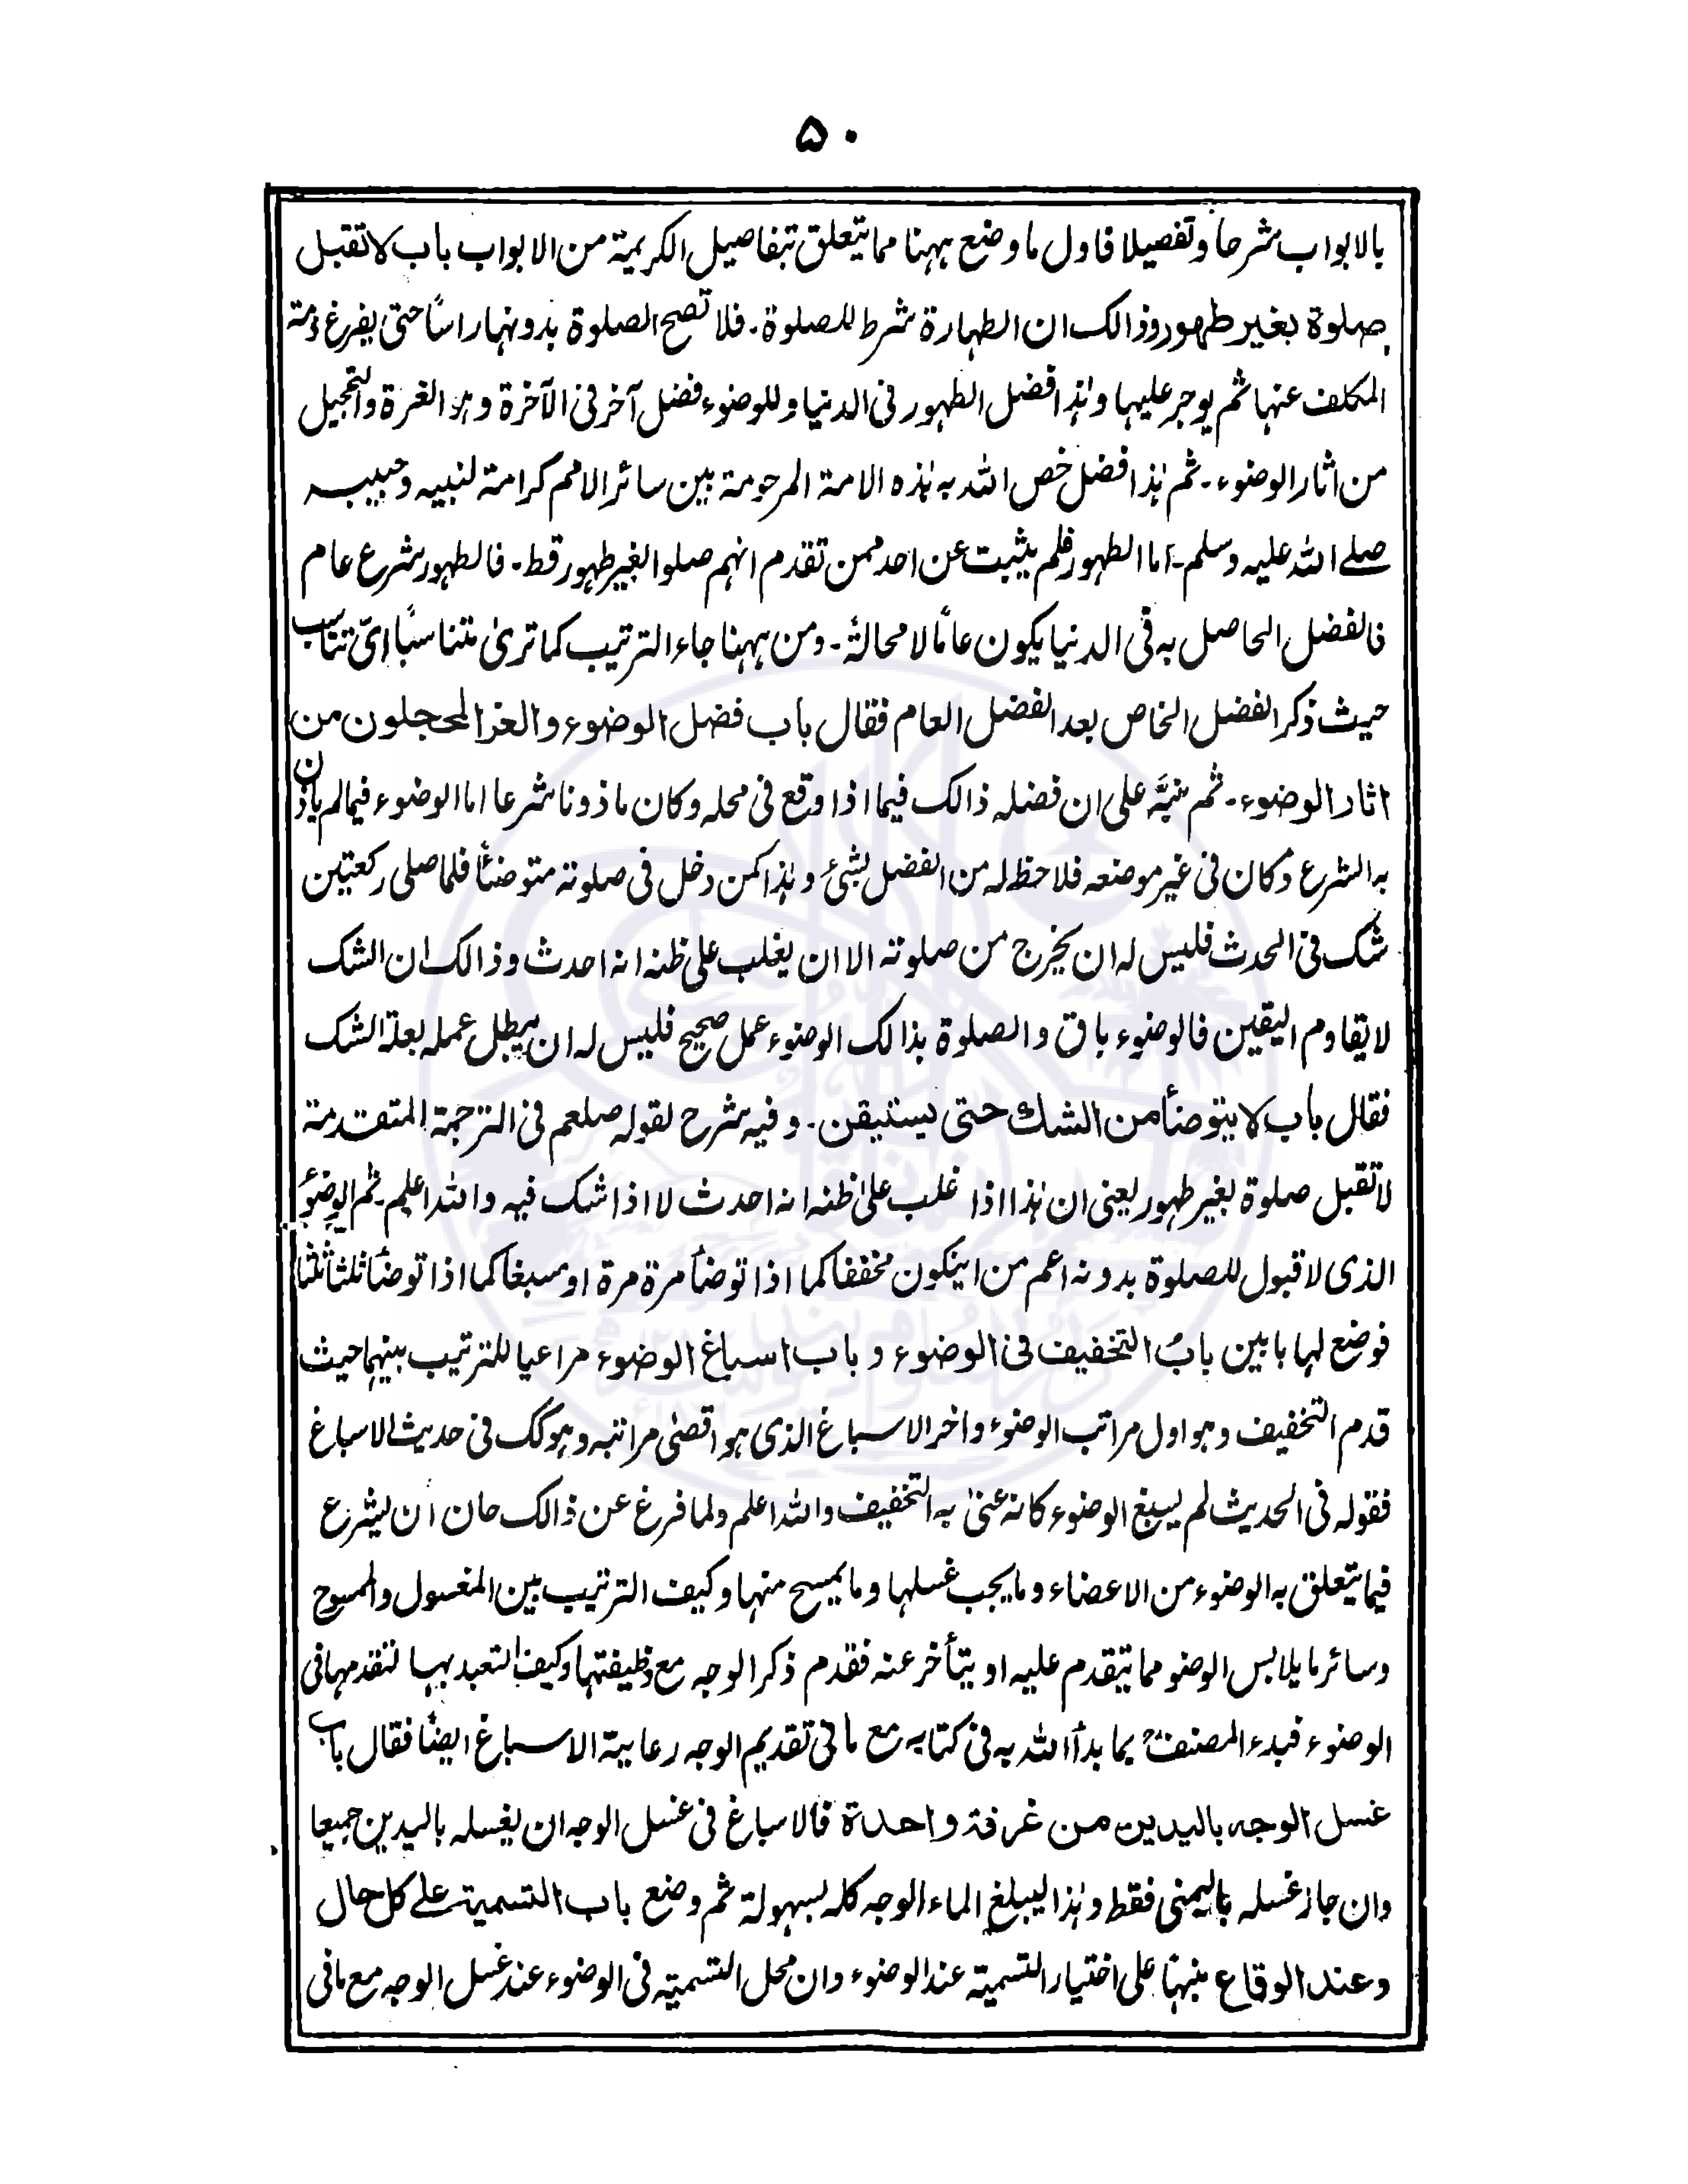 ۵۰
بالابواب شرحا وتفصيلا فاول ما وضع ههنا مما يتعلق بتفاصيل الكريمة من الابواب باب لا تقبل
صلوة بغير طهور وذالك ان الطهارة شرط للصلوة۔ فلا تصح الصلوة بدونها راسًا حتى يفرغ ذمة
المكلف عنها ثم يوجر عليها وهذا فضل الطهور فى الدنيا وللوضوء فضل آخر فى الآخرة وهو الغرة والتحجيل
من اثار الوضوء۔ ثم هذا فضل خص الله به هذه الامة المرحومة بين سائر الامم كرامة لنبيه وحبيبه
صلے الله عليه وسلم۔ اما الطهور فلم يثبت عن احد ممن تقدم انهم صلوا بغير طهور قط۔ فالطهور شرع عام
فالفضل الحاصل به فى الدنيا يكون عامًا لا محالة۔ ومن ههنا جاء الترتيب كما ترىٰ متناسبًا اىّ تناسب
حيث ذكر الفضل الخاص بعد الفضل العام فقال باب فضل الوضوء والغر المحجلون من
اثار الوضوء۔ ثم نبَّه على ان فضله ذالك فيما اذا وقع فى محله وكان ماذونا شرعا اما الوضوء فيما لم ياذن
به الشرع وكان فى غير موضعه فلا حظ له من الفضل بشئ وهذا كمن دخل فى صلوته متوضئًا فلما صلى ركعتين
شك فى الحدث فليس له ان يخرج من صلوته الا ان يغلب على ظنه انه احدث وذالك ان الشك
لا يقاوم اليقين فالوضوء باق والصلوة بذالك الوضوء عمل صحيح فليس له ان يبطل عمله بعلة الشك
فقال باب لا يتوضأ من الشك حتى يستيقن۔ وفيه شرح لقوله صلعم فى الترجمة المتقدمة
لا تقبل صلوة بغير طهور يعنى ان هذا اذا غلب علىٰ ظنه انه احدث لا اذا شك فيه والله اعلم۔ ثم الوضوءُ
الذى لا قبول للصلوة بدونه اعم من ان يكون مخففا كما اذا توضأ مرة مرة او مسبغا كما اذا توضأ ثلثا ثلثا
فوضع لها بابين بابُ التخفيف فى الوضوء و باب اسباغ الوضوء مراعيا للترتيب بينهما حيث
قدم التخفيف وهو اول مراتب الوضوء واخر الاسباغ الذى هو اقصىٰ مراتبه وهو كك فى حديث الاسباغ
فقوله فى الحديث لم يسبغ الوضوء كانه عنىٰ به التخفيف والله اعلم ولما فرغ عن ذالك حان ان يشرع
فيما يتعلق به الوضوء من الاعضاء وما يجب غسلها وما يمسح منها وكيف الترتيب بين المغسول والممسوح
وسائر ما يلابس الوضو مما يتقدم عليه او يتأخر عنه فقدم ذكر الوجه مع وظيفتها وكيف التعبد بها لتقدمها فى
الوضوء فبدء المصنفؒ بما بدأ الله به فى كتابه مع ما فى تقديم الوجه رعاية الاسباغ ايضًا فقال باب
غسل الوجه باليدين من غرفة واحدة فالاسباغ فى غسل الوجه ان يغسله باليدين جميعا
وان جاز غسله باليمنى فقط وهذا ليبلغ الماء الوجه كله بسهولة ثم وضع باب التسمية علے كل حال
وعند الوقاع منبهًا على اختيار التسمية عند الوضوء وان محل التسمية فى الوضوء عند غسل الوجه مع مافى